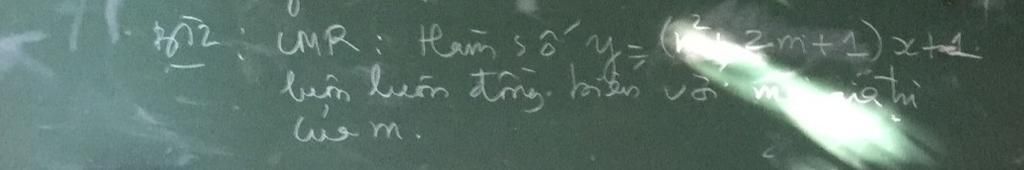 Bài 2: CMR: Hàm số y = (m² + 2m + 1)x + 1
luôn luôn đồng biến với mọi giá trị
của m.